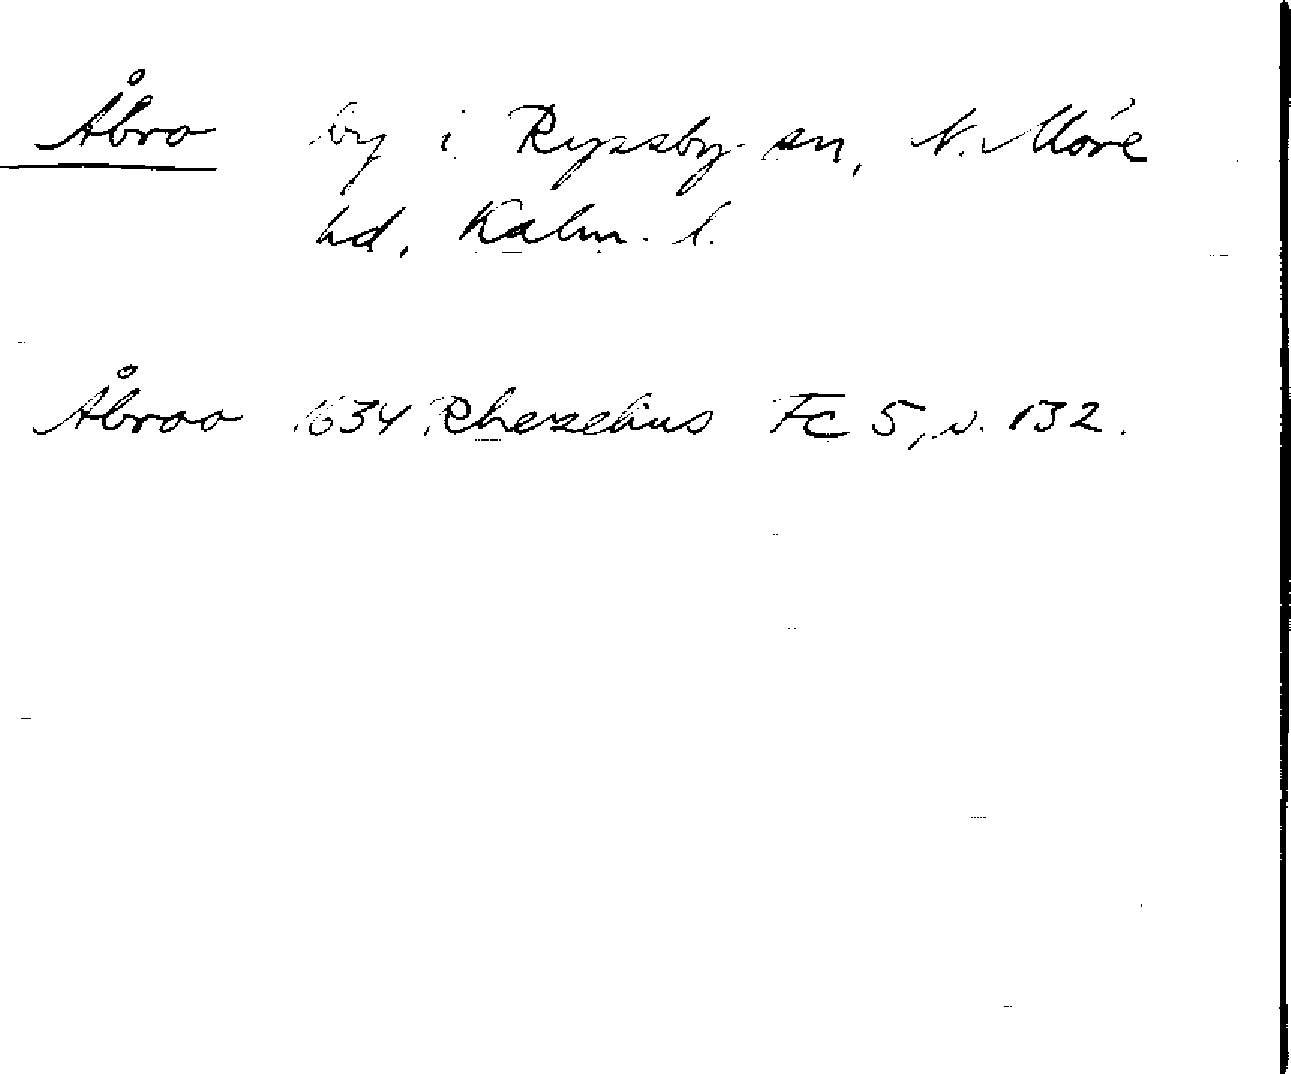 Åbro by i Ryssby sn, N. Möre
hd, Kalm. l.
Åbroo 1634 Rhezelius Fc 5, s. 132.